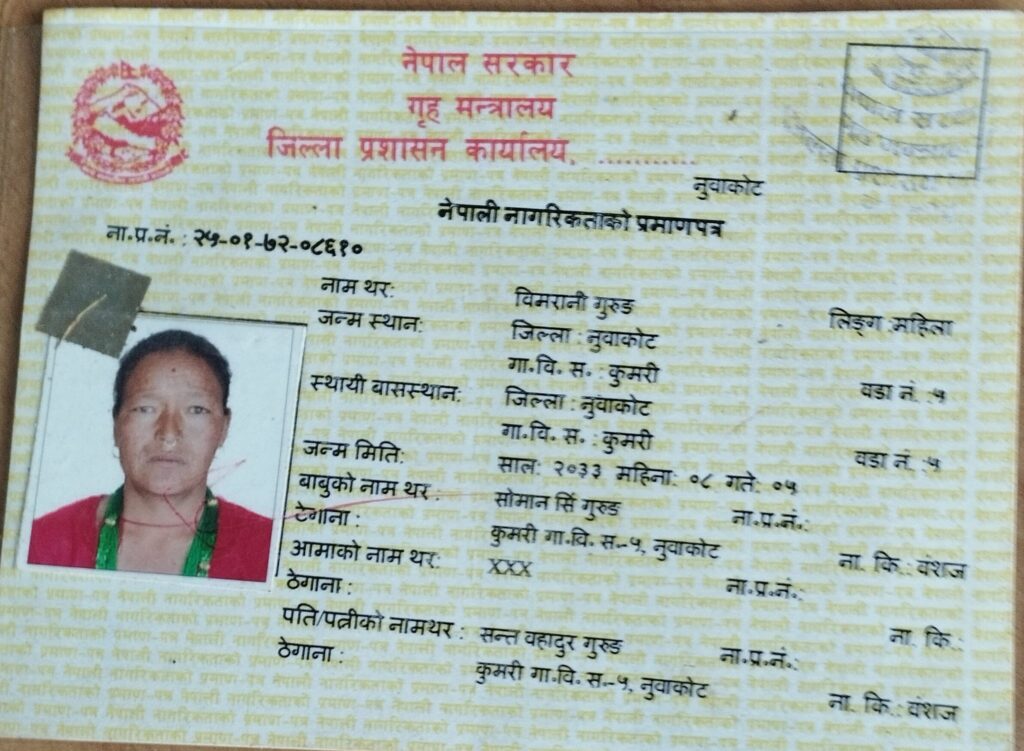 नेपाल सरकार
गृह मन्त्रालय
जिल्ला प्रशासन कार्यालय, ...........
नुवाकोट
नेपाली नागरिकताको प्रमाणपत्र
ना.प्र.नं. : २५-०१-७२-०८६१०
नाम थर: विमरानी गुरुङ लिङ्ग :महिला
जन्म स्थान: जिल्ला : नुवाकोट
गा.वि. स. : कुमरी वडा नं. :५
स्थायी बासस्थान: जिल्ला : नुवाकोट
गा.वि. स. : कुमरी वडा नं. :५
जन्म मिति: साल: २०३३ महिना: ०८ गते: ०५
बाबुको नाम थर : सोमान सिं गुरुङ ना.प्र.नं.:
ठेगाना : कुमरी गा.वि. स.-५, नुवाकोट ना. कि.: वंशज
आमाको नाम थर: XXX ना.प्र.नं.:
ठेगाना : ना. कि.:
पति/पत्नीको नामथर : सन्त वहादुर गुरुङ ना.प्र.नं.:
ठेगाना : कुमरी गा.वि. स.-५, नुवाकोट ना. कि.: वंशज